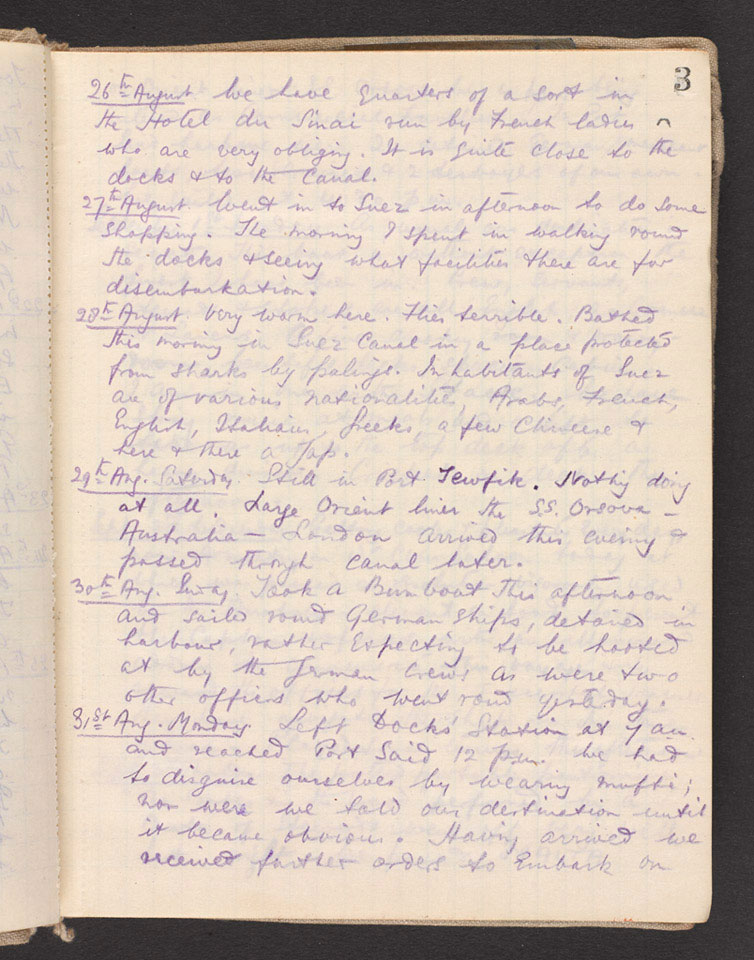 3
26th August We have quarters of a sort in
the Hotel du Sinai run by French ladies
who are very obliging. It is quite close to the
docks & to the Canal.
27th August Went in to Suez in afternoon to do some
shopping. The morning I spent in walking round
the docks & seeing what facilities there are for
disembarkation.
28th August Very warm here. Flies terrible. Bathed
this morning in Suez Canal in a place protected
from sharks by palings. Inhabitants of Suez
are of various nationalities Arabs, French,
English, Italians, Greeks, a few Chineese &
here & there a Jap.
29th Aug. Saturday. Still in Port Tewfik. Nothing doing
at all. Large Orient liner the S.S. Orsova –
Australia – London arrived this evening &
passed through canal later.
30th Aug. Sunday. Took a Bumboat this afternoon
and sailed round German ships, detained in
harbour, rather expecting to be hooted
at by the German Crews as were two
other officers who went round yesterday.
31st Aug. Monday Left Docks Station at 7 am.
and reached Port Said 12 p.m. We had
to disguise ourselves by wearing mufti;
nor were we told our destination until
it became obvious. Having arrived we
received further orders to Embark on